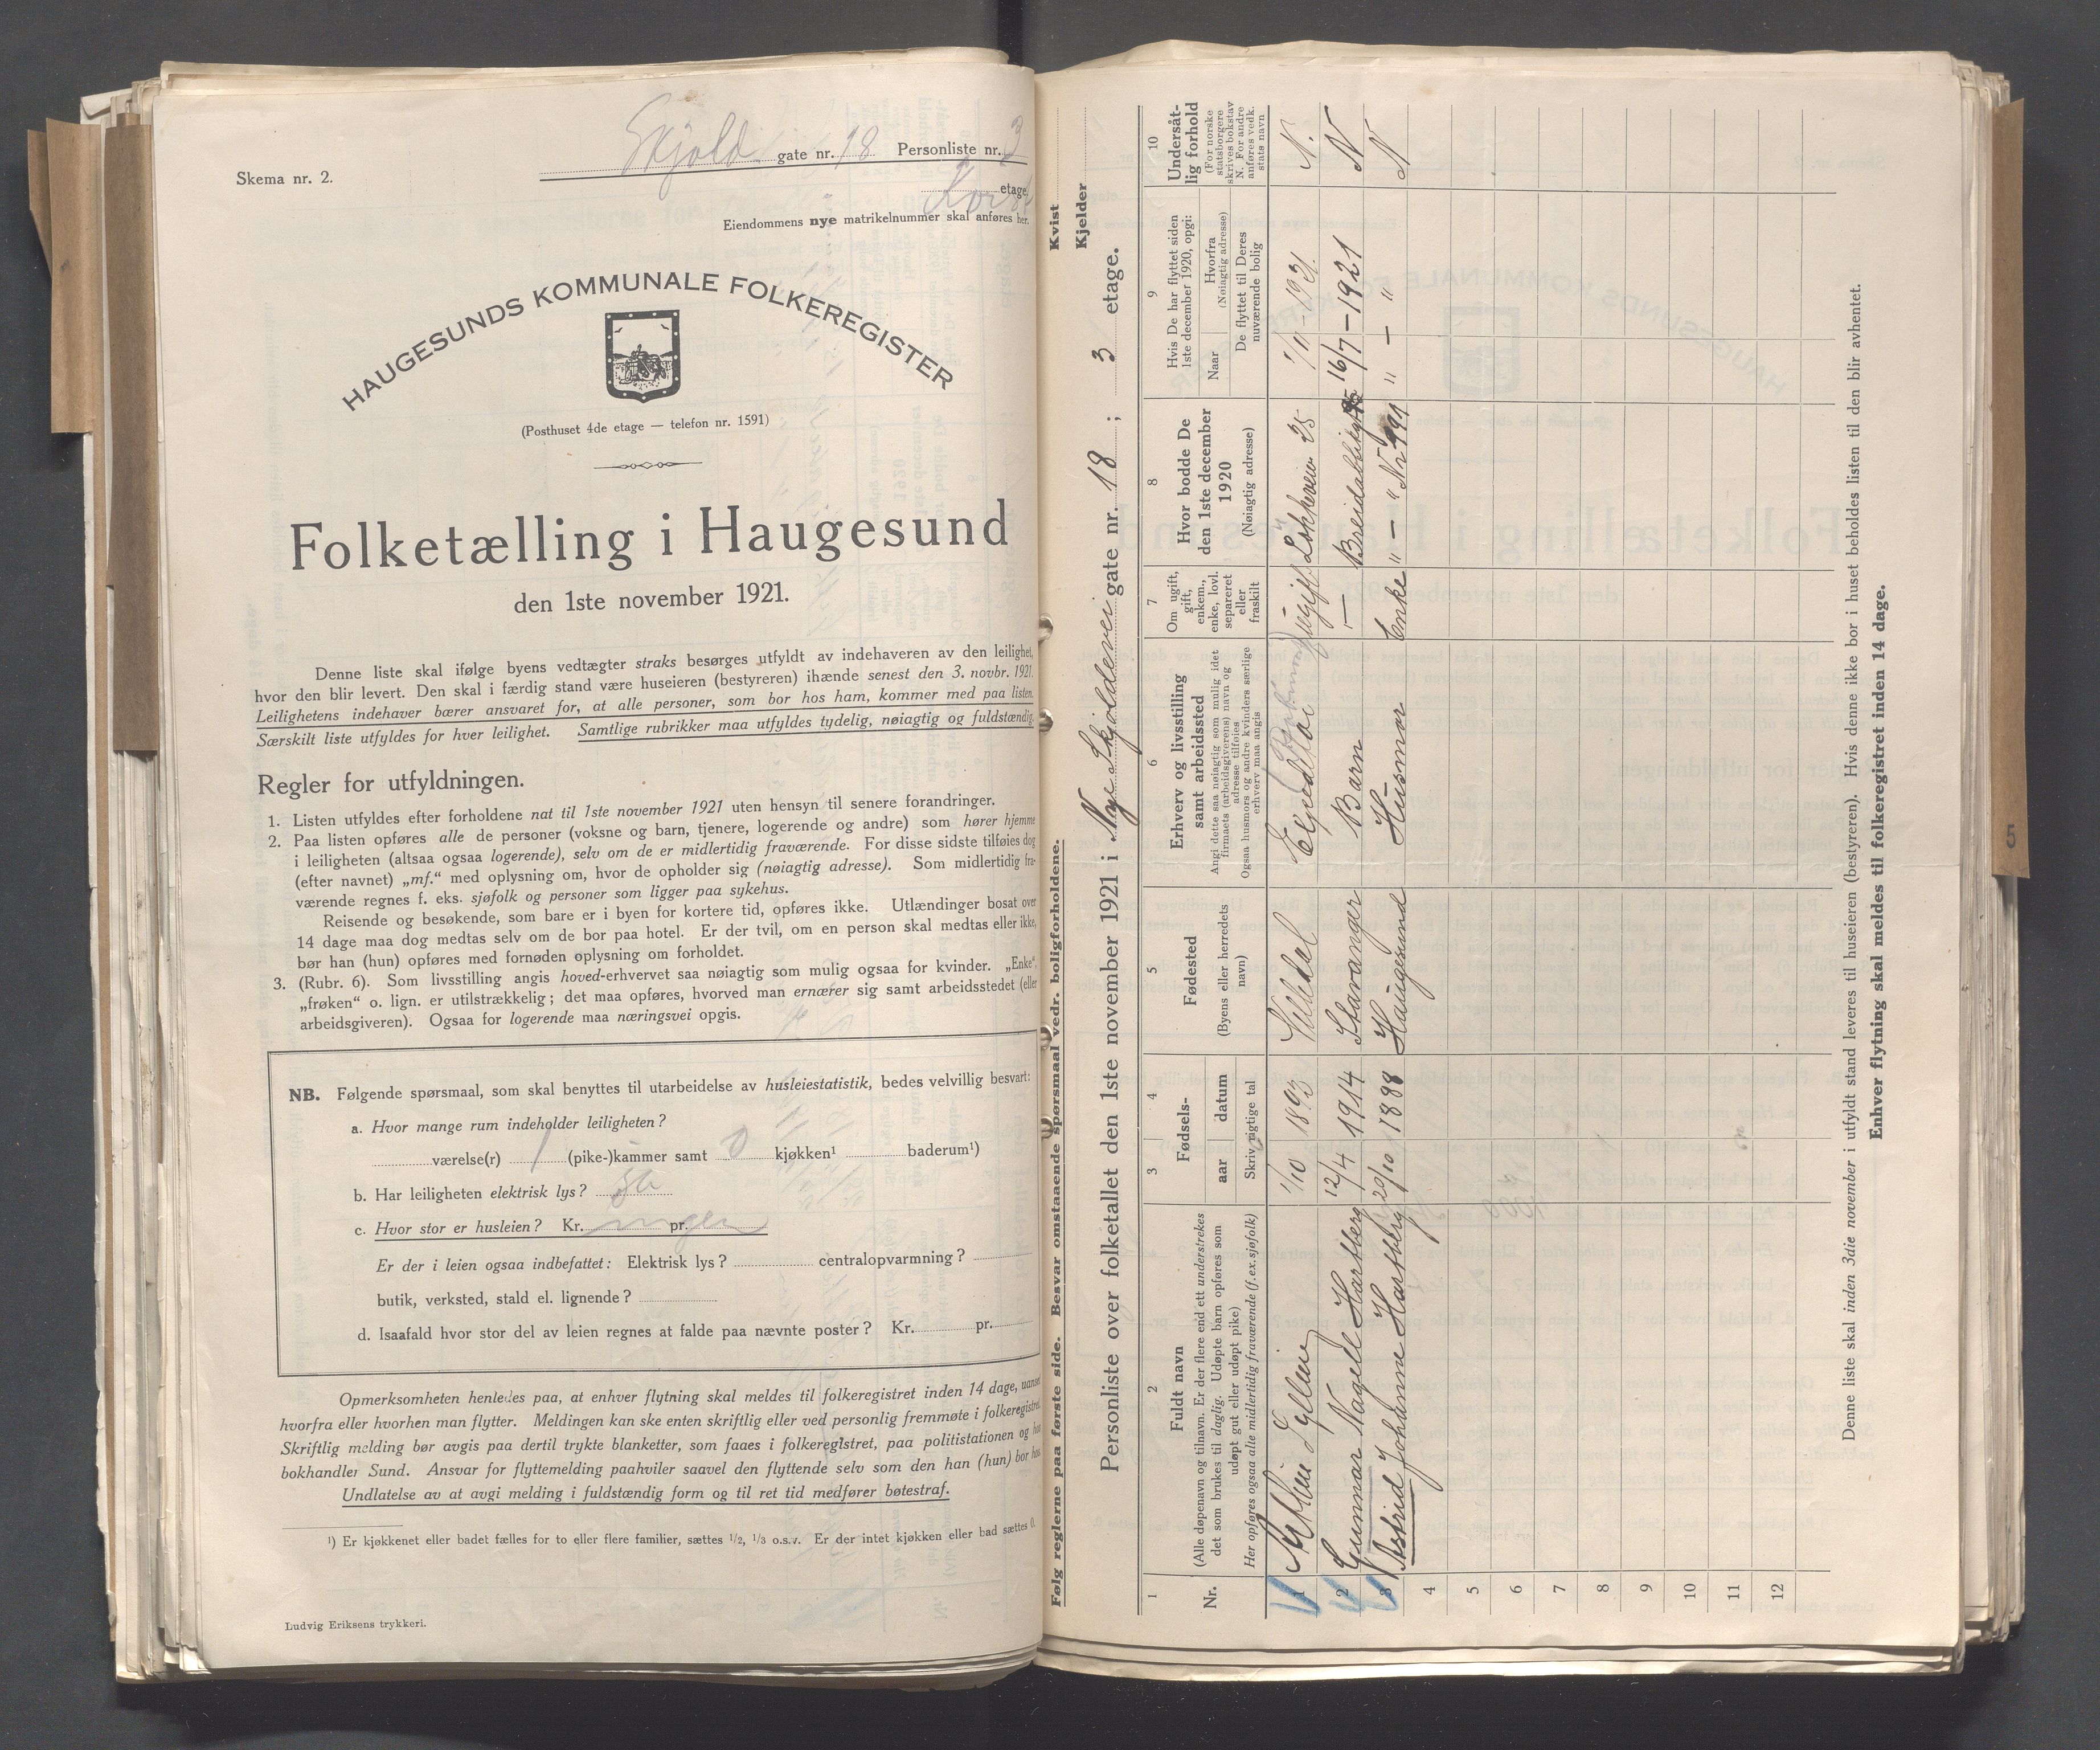 Skjold gate nr. 18 Personliste nr. 3
Skema nr. 2.
Kvist etage.
Eiendommens nye matrikelnummer skal anføres her.
HAUGESUNDS KOMMUNALE FOLKEREGISTER
(Posthuset 4de etage — telefon nr. 1591)
Folketælling i Haugesund
den 1ste november 1921.
Denne liste skal ifølge byens vedtægter straks besørges utfyldt av indehaveren av den leilighet,
hvor den blir levert. Den skal i færdig stand være huseieren (bestyreren) ihænde senest den 3. novbr. 1921.
Leilighetens indehaver bærer ansvaret for, at alle personer, som bor hos ham, kommer med paa listen.
Særskilt liste utfyldes for hver leilighet. Samtlige rubrikker maa utfyldes tydelig, nøiagtig og fuldstændig.
Regler for utfyldningen.
1. Listen utfyldes efter forholdene nat til 1ste november 1921 uten hensyn til senere forandringer.
2. Paa listen opføres alle de personer (voksne og barn, tjenere, logerende og andre) som hører hjemme
i leiligheten (altsaa ogsaa logerende), selv om de er midlertidig fraværende. For disse sidste tilføies dog
(efter navnet) „mf.“ med oplysning om, hvor de opholder sig (nøiagtig adresse). Som midlertidig fra-
værende regnes f. eks. sjøfolk og personer som ligger paa sykehus.
Reisende og besøkende, som bare er i byen for kortere tid, opføres ikke. Utlændinger bosat over
14 dage maa dog medtas selv om de bor paa hotel. Er der tvil, om en person skal medtas eller ikke,
bør han (hun) opføres med fornøden oplysning om forholdet.
3. (Rubr. 6). Som livsstilling angis hoved-erhvervet saa nøiagtig som mulig ogsaa for kvinder. „Enke“,
„frøken“ o. lign. er utilstrækkelig; det maa opføres, hvorved man ernærer sig samt arbeidsstedet (eller
arbeidsgiveren). Ogsaa for logerende maa næringsvei opgis.
NB. Følgende spørsmaal, som skal benyttes til utarbeidelse av husleiestatistik, bedes velvillig besvart:
a. Hvor mange rum indeholder leiligheten?
værelse(r) 1 (pike-)kammer samt 0 kjøkken¹ baderum¹)
b. Har leiligheten elektrisk lys? ja
c. Hvor stor er husleien? Kr. ingen pr.
Er der i leien ogsaa indbefattet: Elektrisk lys? centralopvarmning?
butik, verksted, stald el. lignende?
d. Isaafald hvor stor del av leien regnes at falde paa nævnte poster? Kr. pr.
Opmerksomheten henledes paa, at enhver flytning skal meldes til folkeregistret inden 14 dage, uanset
hvorfra eller hvorhen man flytter. Meldingen kan ske enten skriftlig eller ved personlig fremmøte i folkeregistret.
Skriftlig melding bør avgis paa dertil trykte blanketter, som faaes i folkeregistret, paa politistationen og hos
bokhandler Sund. Ansvar for flyttemelding paahviler saavel den flyttende selv som den han (hun) bor hos.
Undlatelse av at avgi melding i fuldstændig form og til ret tid medfører bøtestraf.
¹) Er kjøkkenet eller badet fælles for to eller flere familier, sættes 1/2, 1/3 o.s.v. Er der intet kjøkken eller bad sættes 0.
Ludvig Eriksens trykkeri.
Følg reglerne paa første side. Besvar omstaaende spørsmaal vedr. boligforholdene.
Kvist
Kjelder
Personliste over folketallet den 1ste november 1921 i Nye Skjoldevei gate nr. 18; 3 etage.
1 2 3 4 5 6 7 8 9 10
Nr.
Fuldt navn
(Alle døpenavn og tilnavn. Er der flere end ett understrekes
det som brukes til daglig. Udøpte barn opføres som
udøpt gut eller udøpt pike)
Her opføres ogsaa alle midlertidig fraværende (f.ex. sjøfolk)
Fødsels-
aar datum
Skriv rigtige tal
Fødested
(Byens eller herredets
navn)
Erhverv og livsstilling
samt arbeidssted
Angi dette saa nøiagtig som mulig idet
firmaets (arbeidsgiverens) navn og
adresse tilføies
Ogsaa husmors og andre kvinders særlige
erhverv maa angis
Om ugift,
gift,
enkem.,
enke, lovl.
separeret
eller
fraskilt
Hvor bodde De
den 1ste december
1920
(Nøiagtig adresse)
Hvis De har flyttet siden
1ste december 1920, opgi:
Naar
Hvorfra
(Nøiagtig adresse)
De flyttet til Deres
nuværende bolig
Undersåt-
lig forhold
(For norske
statsborgere
skrives bokstav
N. For andre
anføres vedk.
stats navn
1/10 1893 ugift Løkkeveien 25 1/11-1921. N.
2 Gunnar Nagell Hartberg 12/4 1914 Stavanger Barn — Breidablikgt 16/7-1921 N
3 Astrid Johanne Hartberg 20/10 1888 Haugesund Husmor Enke " — " Nr 191 " — " N
4
5
6
7
8
9
10
11
12
Denne liste skal inden 3die november i utfyldt stand leveres til huseieren (bestyreren). Hvis denne ikke bor i huset beholdes listen til den blir avhentet.
Enhver flytning skal meldes til folkeregistret inden 14 dage.
5